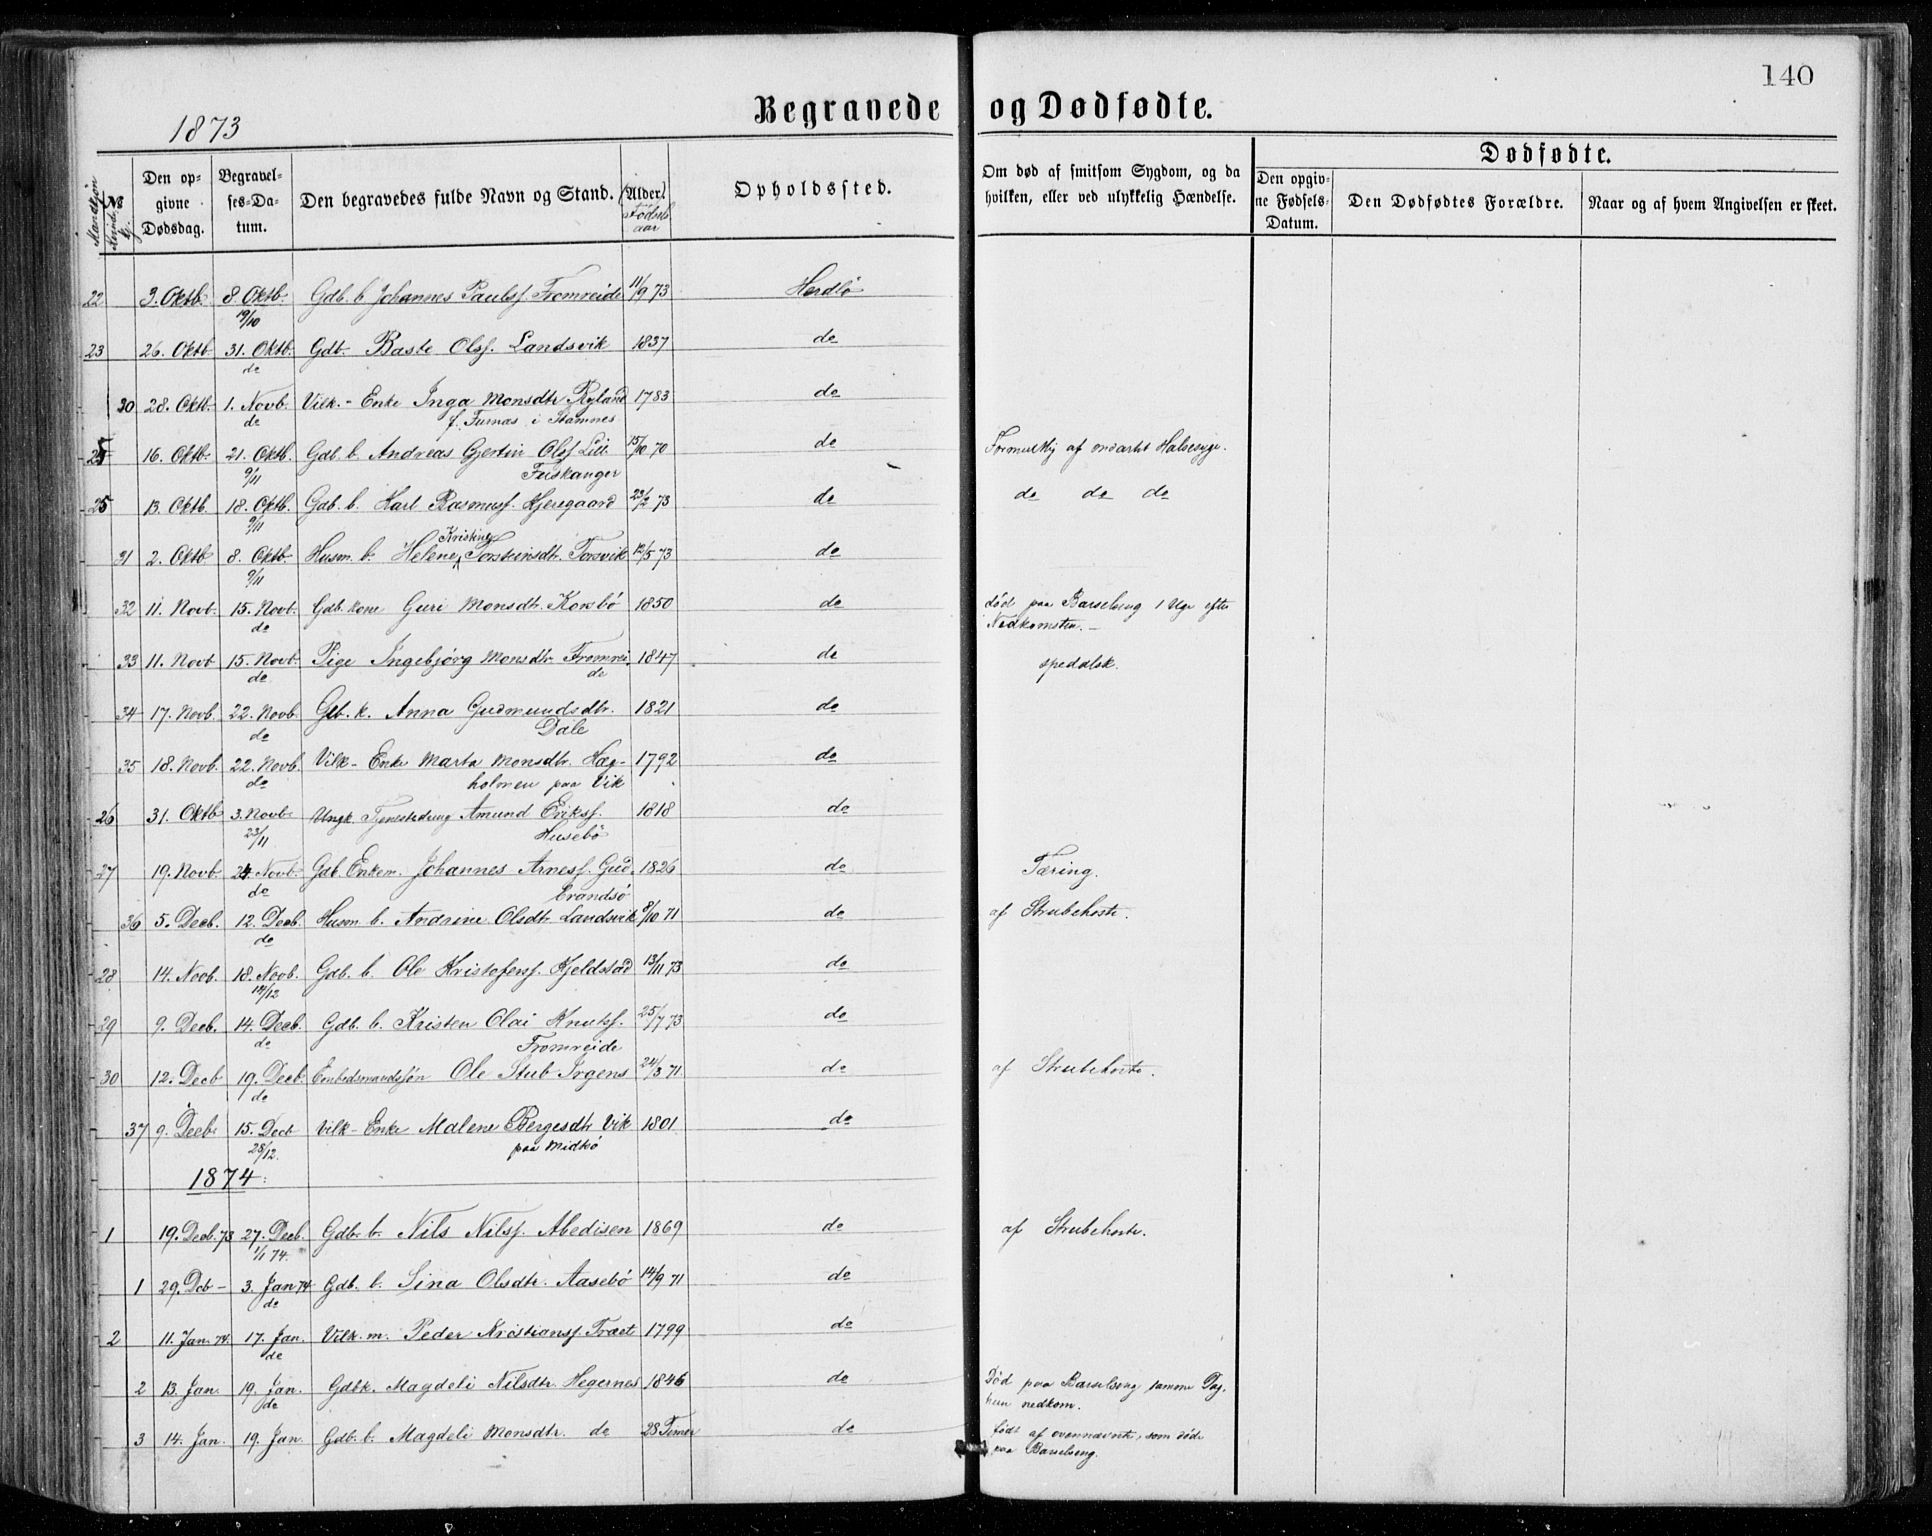 140
Begravede og Dødfødte.
1873
Mandkjøn
No
Kvindekj.
Den op-
givne
Dødsdag.
Begravel-
ses-Da-
tum.
Den begravedes fulde Navn og Stand.
(Alder)
Fødsels
aar
Opholdssted.
Om død af smitsom Sygdom, og da
hvilken, eller ved ulykkelig Hændelse.
Dødfødte.
Den opgiv-
ne Fødsels-
Datum.
Den Dødfødtes Forældre.
Naar og af hvem Angivelsen er skeet.
22 3. Oktb. 8. Oktb. Gdb. b. Johannes Paulss. Fromreide 11/9 73 Herdlø
19/10
23 26. Oktb. 31. Oktb. Gdb. Baste Olss. Landsvik 1837 do
do
30 28. Oktb. 1. Novb. Vilk.- Enke Inga Monsdtr Ryland 1783 do
do f. Furnas i Stamnes
16. Oktb. 21. Oktb. Gdb. b. Andreas Gjertin Olss Lill 15/10 70 do Formentlig af ondartet Halssyge.
9/11 Friskanger
25 13. Oktb. 18. Oktb. Gdb. b. Karl Rasmuss. Hjeregaard 23/2 73 do do do do
9/11 Kristine
31 2. Oktb. 8. Oktb. Husm. b. Helene Torsteinsdtr. Torsvik 12/5 73 do
9/11
32 11. Novb. 15. Novb. Gdb. kone Guri Monsdtr. Korsbø 1850 do død paa Barselseng 1 Uge efter
do Nedkomsten.-
33 11. Novb 15. Novb. Pige Ingebjørg Monsdtr Fromrei 1847 do spedalsk.
do de
34 17. Novb. 22. Novb. Gb. k. Anna Gudmundsdtr. 1821 do
do Dale
35 18. Novb. 22. Novb. Vilk- Enke Marta Monsdtr. Hæg- 1792 do
do holmen paa Vik
26 31. Oktb 3. Novb. Ungk. Tjenestedreng Amund Erikss. 1818 do
23/11 Husebø
27 19. Novb. 24. Novb. Gdb. Enkem. Johannes Arness. Gud 1826 do Tæring.
do brandsø
36 5. Decb. 12. Decb. Husm. b. Andrine Olsdtr. Landsvik 8/10 71 do af Strubehoste.
do
28 14. Novb. 18. Novb. Gdb. b. Ole Kristofers. Kjeldstad 13/11 73 do
14/12
29 9. Decb. 14. Decb. Gdb. b. Kristen Olai Knutss. 25/7 73 do
do Fromreide
30 12. Decb 19. Decb. Embedsmandssøn Ole Stub Irgens 24/3 71 do af Strubehoste.
do
37 9. Decb. 15. Decb Vilk- Enke Malene Bergesdtr Vik 1801 do
28/12. paa Midtø
1874.
1 19. Decb. 73 27. Decb. Gdb. b. Nils Nilss. Abedisen 1869 do af Strubehoste.
1/1 74.
1 29. Dcb - 3. Jan 74 Gdb. b. Sina Olsdtr. Aasebø 14/9 71 do
do
2 11. Jan. 74. 17. Jan. Vilk. m. Peder Kristianss. Træet 1799 do
do
2 13. Jan. 19. Jan. Gdbk. Magdeli Nilsdtr. Hegernes 1846 do Død paa Barselseng samme Dag
do hun nedkom.
3 14. Jan. 19. Jan. Gdb. b. Magdeli Monsdtr. do 28 Timer do født af ovennævnte, som døde
paa Barselseng.